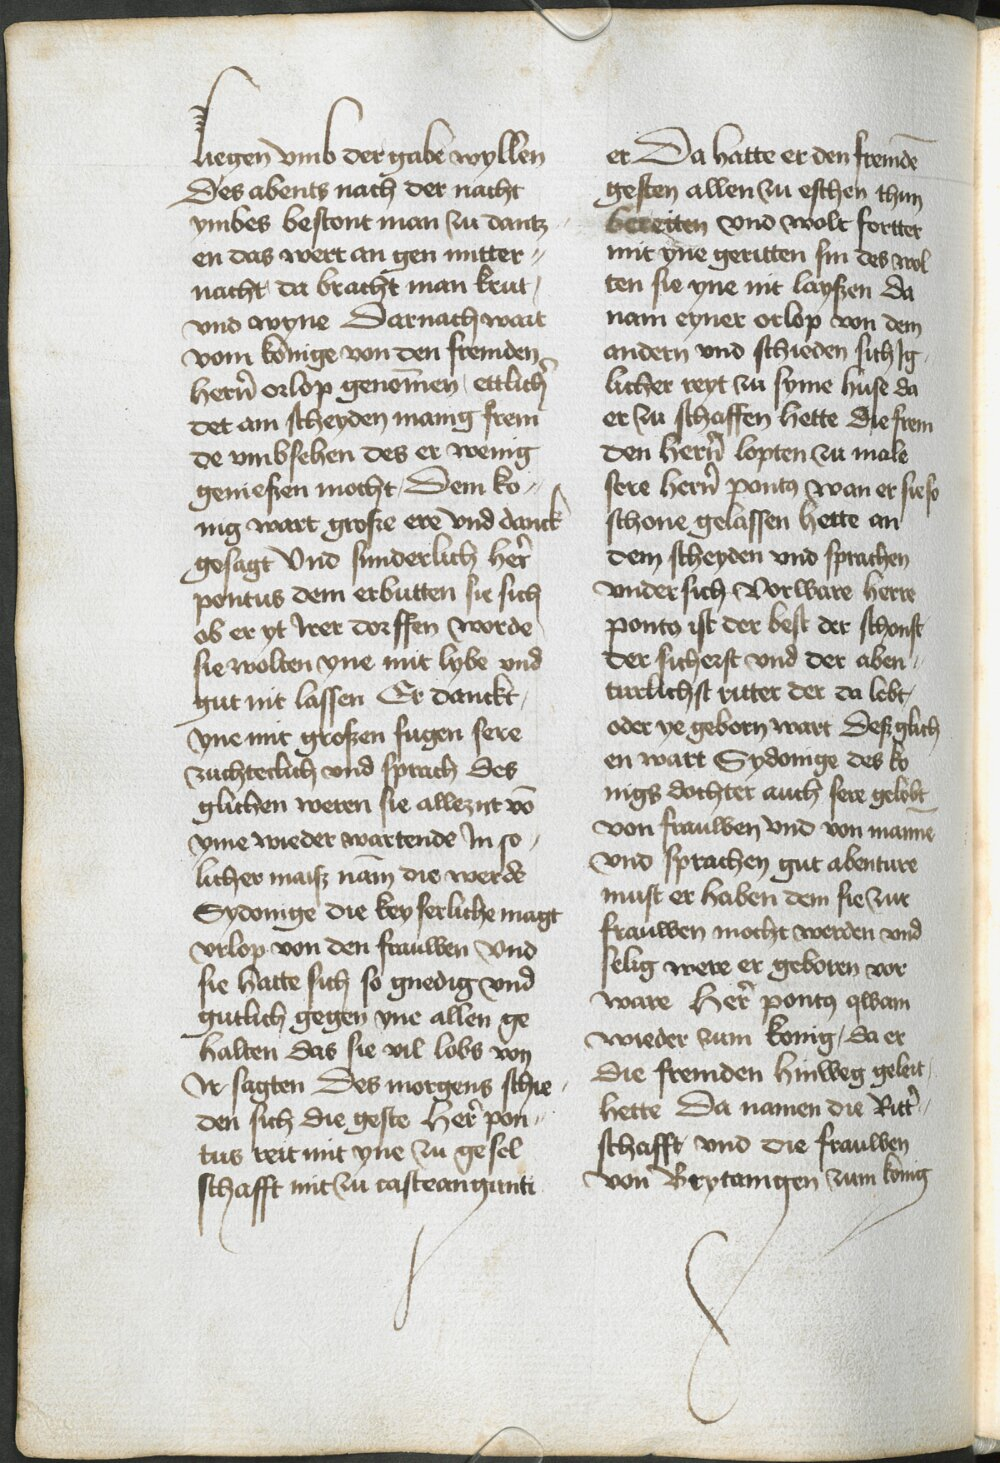 liegen vmb der gabe wyllen
Des abents nach der nacht
ymbes bestont man zu dantz
en das wert an gen mitter〃
nacht da bracht man krut /
vnd wyne Darnach wart
vom konige von den fremden
hern̄ orlop genom̄en / ettlich̓
det am scheyden manig frem
de vmbsehen des er wenig
genießen mocht / Dem ko〃
nig wart große ere vnd danck
gesagt Vnd sunderlich her̓
pontus dem erbutten sie sich
ob er yt Irer dorffen worde
sie wolten yne mit lybe vnd
gut nit lassen Er danckt /
yne mit großen fugen sere
zuchteclich vnd sprach des
glichen weren sie allezyt vō
yme wieder wartende In so〃
licher maisz nam̄ die werde
Sydonige die keyserliche magt
vrlop von den frauwen Vnd
sie hatte sich so gnedig vnd
gutlich gegen yne allen ge
halten das sie vil lobs von
Ir sagten Des morgens schie〃
den sich die geste Her̓ pon〃
tus reit mit yne zu gesel
schafft mit zu casteangunti
er Da hatte er den fremdē
gesten allen zu eschen thun
bereitten vnd wolt fortter
mit yne geritten sin des wol
ten sie yne nit layßen Da
nam eyner orlop von dem
andern vnd schieden sich Ig〃
licher reyt zu syme huse da
er zu schaffen hette Die frem
den hern̄ lopten zu male
sere hern̄ pontꝯ wan er sie so
schone gelassen hette an
dem scheyden vnd sprachen
vnder sich Vorware herre
pontꝯ ist der best der schonst
der sicherst vnd der aben〃
turlichst ritter der da lebt /
oder ye geborn wart Deßglich
en wart Sydonige des ko
nigs dochter auch sere gelobt
von frauwen vnd von mannē
vnd sprachen gut abenture
must er haben dem sie zur
frauwen mocht werden vnd
selig were er geboren vor
ware Her̓ pontꝯ qwam
wieder zum konig / da er
die fremden hinweg geleit /
hette Da namen die Ritt̓〃
schafft vnd die frauwen
von Brytanigen zum konig